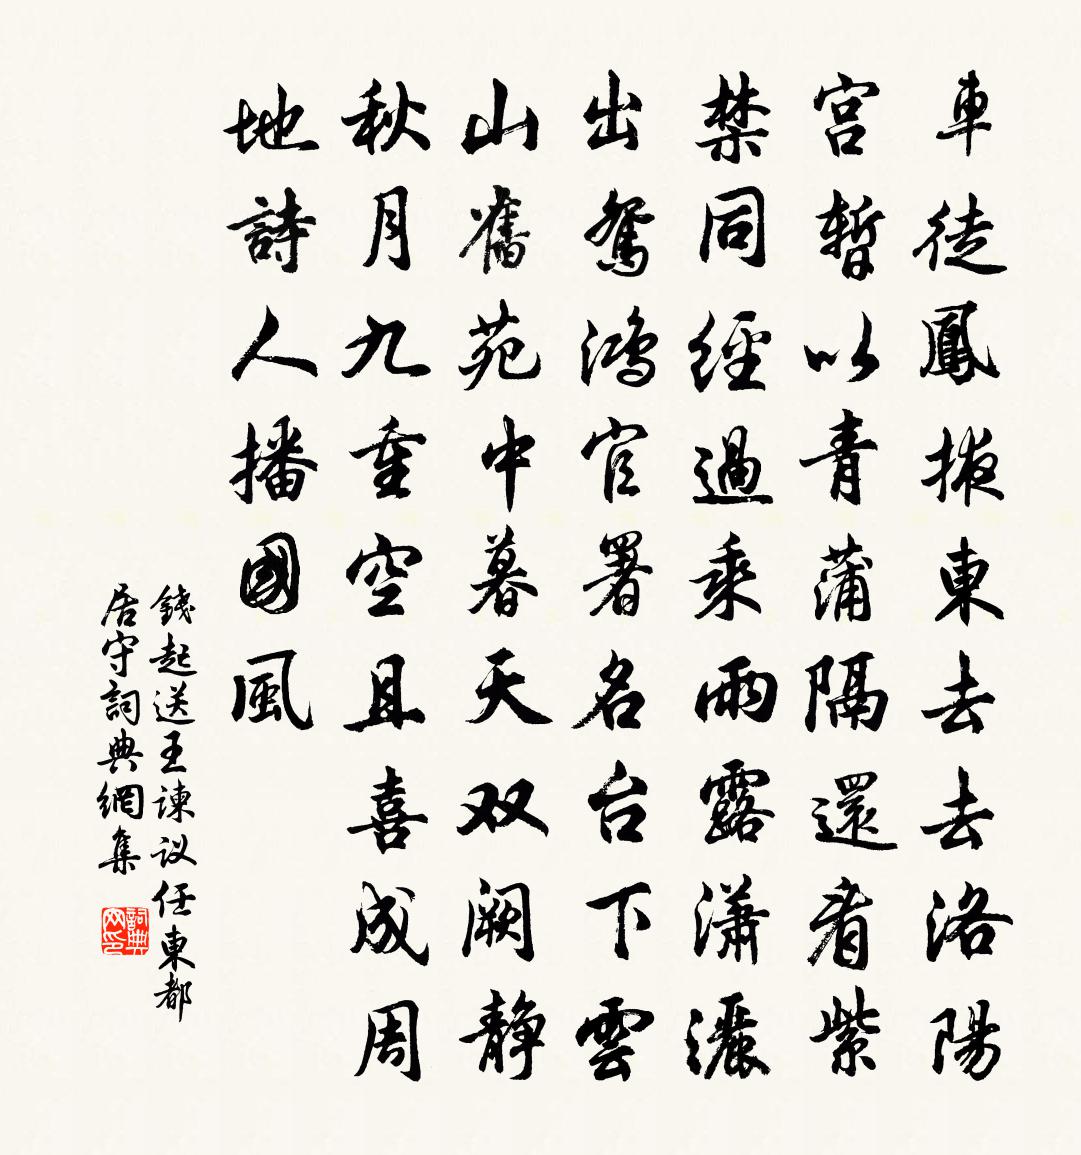 車徒鳳掖東去去洛陽
宮暫以青蒲隔還看紫
禁同經過乘雨露瀟灑
出鴛鴻官署名台下雲
山舊苑中暮天双阙静
秋月九重空且喜成周
地詩人播國風
錢起送王諫议任東都
居守詞典網集
詞典网印